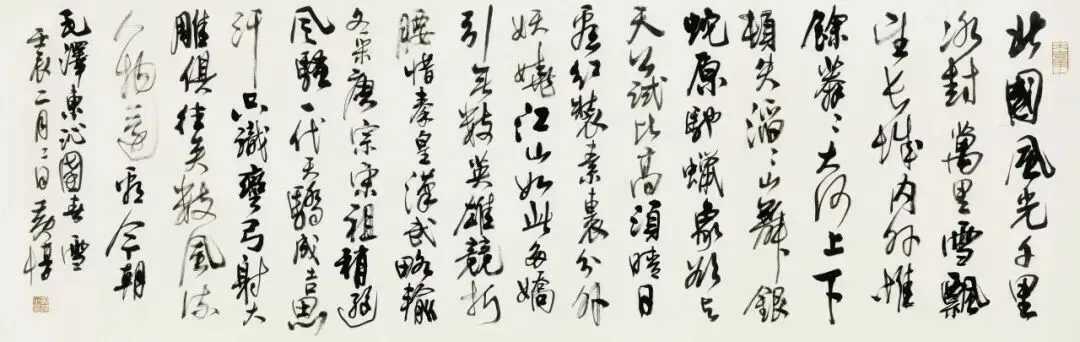 北國風光千里
冰封萬里雪飄
望長城內外惟
餘莽〻大河上下
頓失滔〻山舞銀
蛇原馳蠟象欲与
天公試比高須晴日
看紅裝素裹分外
妖嬈江山如此多嬌
引無數英雄競折
腰惜秦皇漢武略輸
文采唐宗宋祖稍遜
風騷一代天驕成吉思
汗只識彎弓射大
雕俱往矣數風流
人物還看今朝
毛澤東沁園春雪
壬辰二月二日黃惇